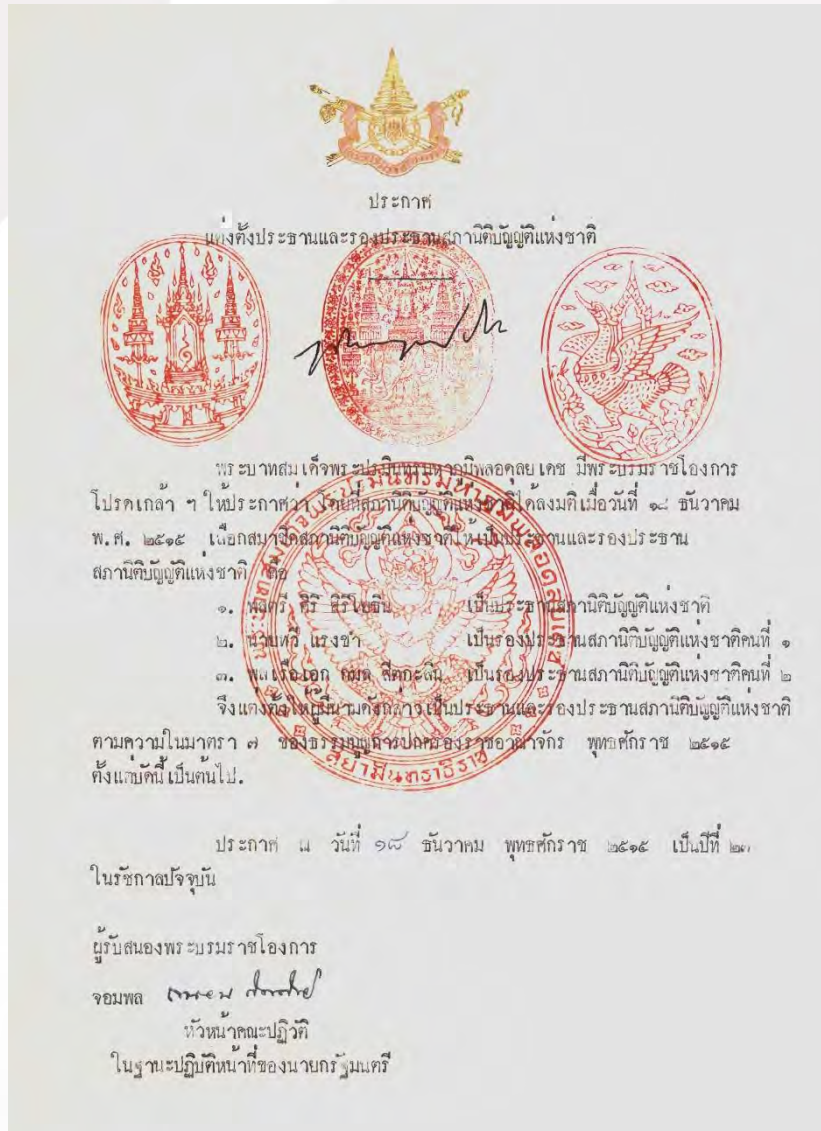 ประกาศ
แต่งตั้งประธานและรองประธานสภานิติบัญญัติแห่งชาติ
พระบาทสมเด็จพระปรมินทรมหาภูมิพลอดุลยเดช มีพระบรมราชโองการ
โปรดเกล้า ฯ ให้ประกาศว่า โดยที่สภานิติบัญญัติแห่งชาติได้ลงมติเมื่อวันที่ ๑๘ ธันวาคม
พ.ศ. ๒๕๑๕ เลือกสมาชิกสภานิติบัญญัติแห่งชาติให้เป็นประธานและรองประธาน
สภานิติบัญญัติแห่งชาติ คือ
๑. พลตรี ศิริ สิริโยธิน เป็นประธานสภานิติบัญญัติแห่งชาติ
๒. นายทวี แรงขำ เป็นรองประธานสภานิติบัญญัติแห่งชาติคนที่ ๑
๓. พลเรือเอก กมล สีตกะลิน เป็นรองประธานสภานิติบัญญัติแห่งชาติคนที่ ๒
จึงแต่งตั้งให้ผู้มีนามดังกล่าวเป็นประธานและรองประธานสภานิติบัญญัติแห่งชาติ
ตามความในมาตรา ๗ ของธรรมนูญการปกครองราชอาณาจักร พุทธศักราช ๒๕๑๕
ตั้งแต่บัดนี้เป็นต้นไป.
ประกาศ ณ วันที่ ๑๘ ธันวาคม พุทธศักราช ๒๕๑๕ เป็นปีที่ ๒๗
ในรัชกาลปัจจุบัน
ผู้รับสนองพระบรมราชโองการ
จอมพล
หัวหน้าคณะปฏิวัติ
ในฐานะปฏิบัติหน้าที่ของนายกรัฐมนตรี
พระบาทสมเด็จพระปรมินทรมหาภูมิพลอดุลยเดช
สยามินทราธิราช